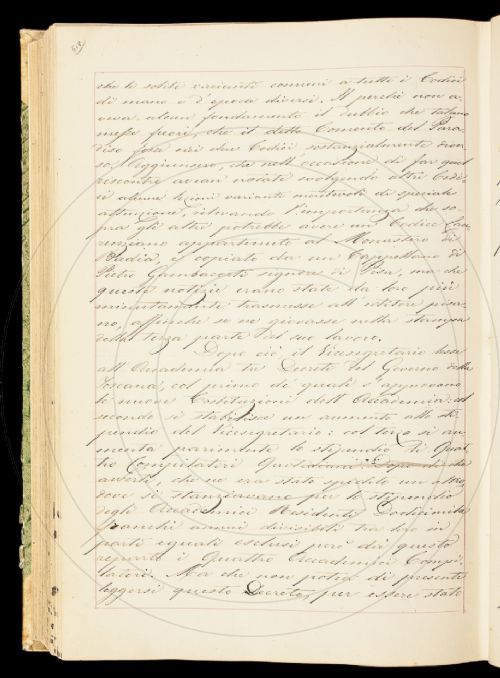 che le solite varianti comuni a tutti i Codici
di mano e d'epoca diversi. Il perchè non a-
veva alcun fondamento il dubbio che taluno
messe fuori, che il detto Comento del Para-
diso fosse nei due Codici sostanzialmente diver-
so. Aggiunsero, che nell'occasione di far quel
riscontro avean notate svolgendo altri Codi-
ci alcune lezioni varianti meritevoli di speciale
attenzione, rilevando l'importanza che so-
pra gli altri potrebbe avere un Codice Lau-
renziano appartenuto al Monastero di
Badia, e copiato da un Cappellano di
Pietro Gambacorti signore di Pisa, ma che
queste notizie erano state da loro più
minutamente trasmesse all'editore pisa-
no, affinchè se ne giovasse nella stampa
della terza parte del suo lavoro.
Dopo ciò, il Vicesegretario lesse
all'Accademia tre Decreti del Governo della
Toscana, col primo de' quali s'approvano
le nuove Costituzioni dell'Accademia: col
secondo si stabilisce un aumento allo sti-
pendio del Vicesegretario: col terzo si au-
menta parimente lo stipendio ai Quat-
tro Compilatori
avvertì, che ne era stato spedito un altro,
dove si stanziavano per lo stipendio
degli Accademici Residenti Dodicimila
franchi annui divisibili tra loro in
parti eguali esclusi però da questo
i Quattro Accademici Compi-
latori. Ma che non potea di presente
leggersi questo Decreto, per essere stato